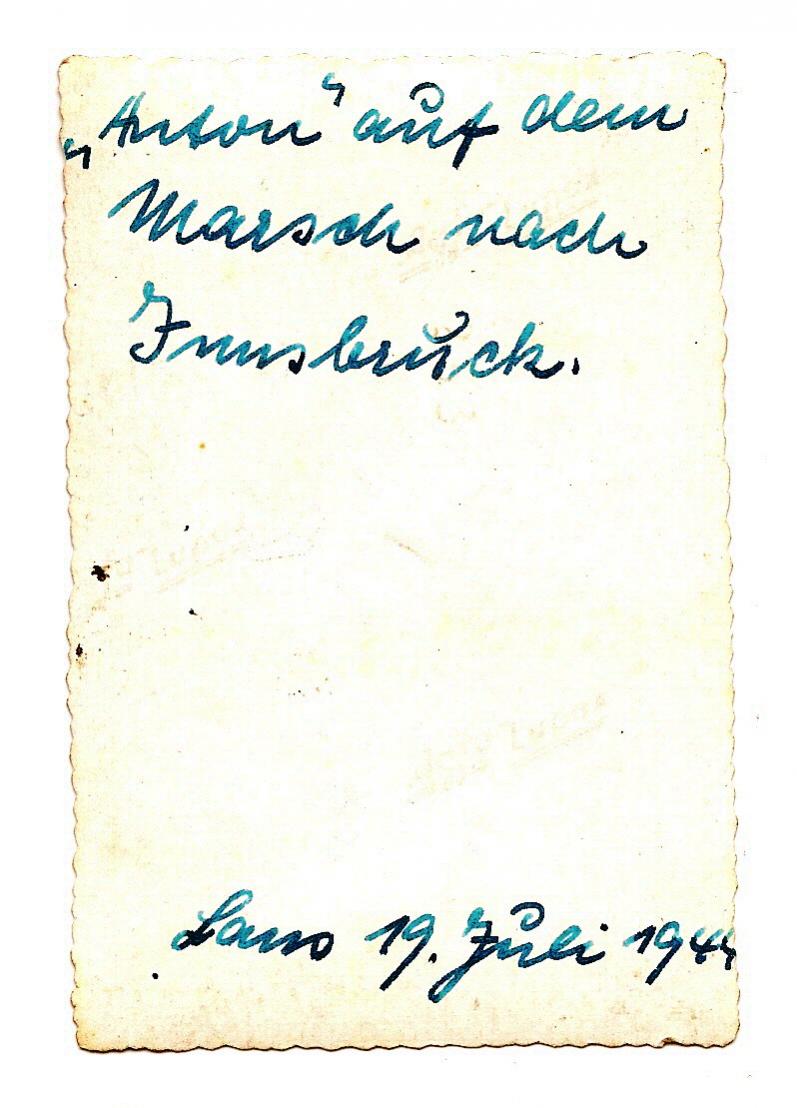 „Anton“ auf dem
Marsch nach
Innsbruck.
Lans 19. Juli 1944